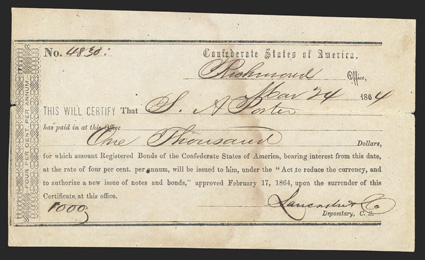 No. 4830: Confederate States of America.
Richmond Office,
Mar 24 1864
THIS WILL CERTIFY That S. A Porter
has paid in at this Office
One Thousand Dollars,
for which amount Registered Bonds of the Confederate States of America, bearing interest from this date,
at the rate of four per cent. per annum, will be issued to him, under the "Act to reduce the currency, and
to authorize a new issue of notes and bonds," approved February 17, 1864, upon the surrender of this
Certificate, at this office.
$1000 Lancaster & Co
Depositary, C. S.
FOUR PER CENT. PER ANNUM